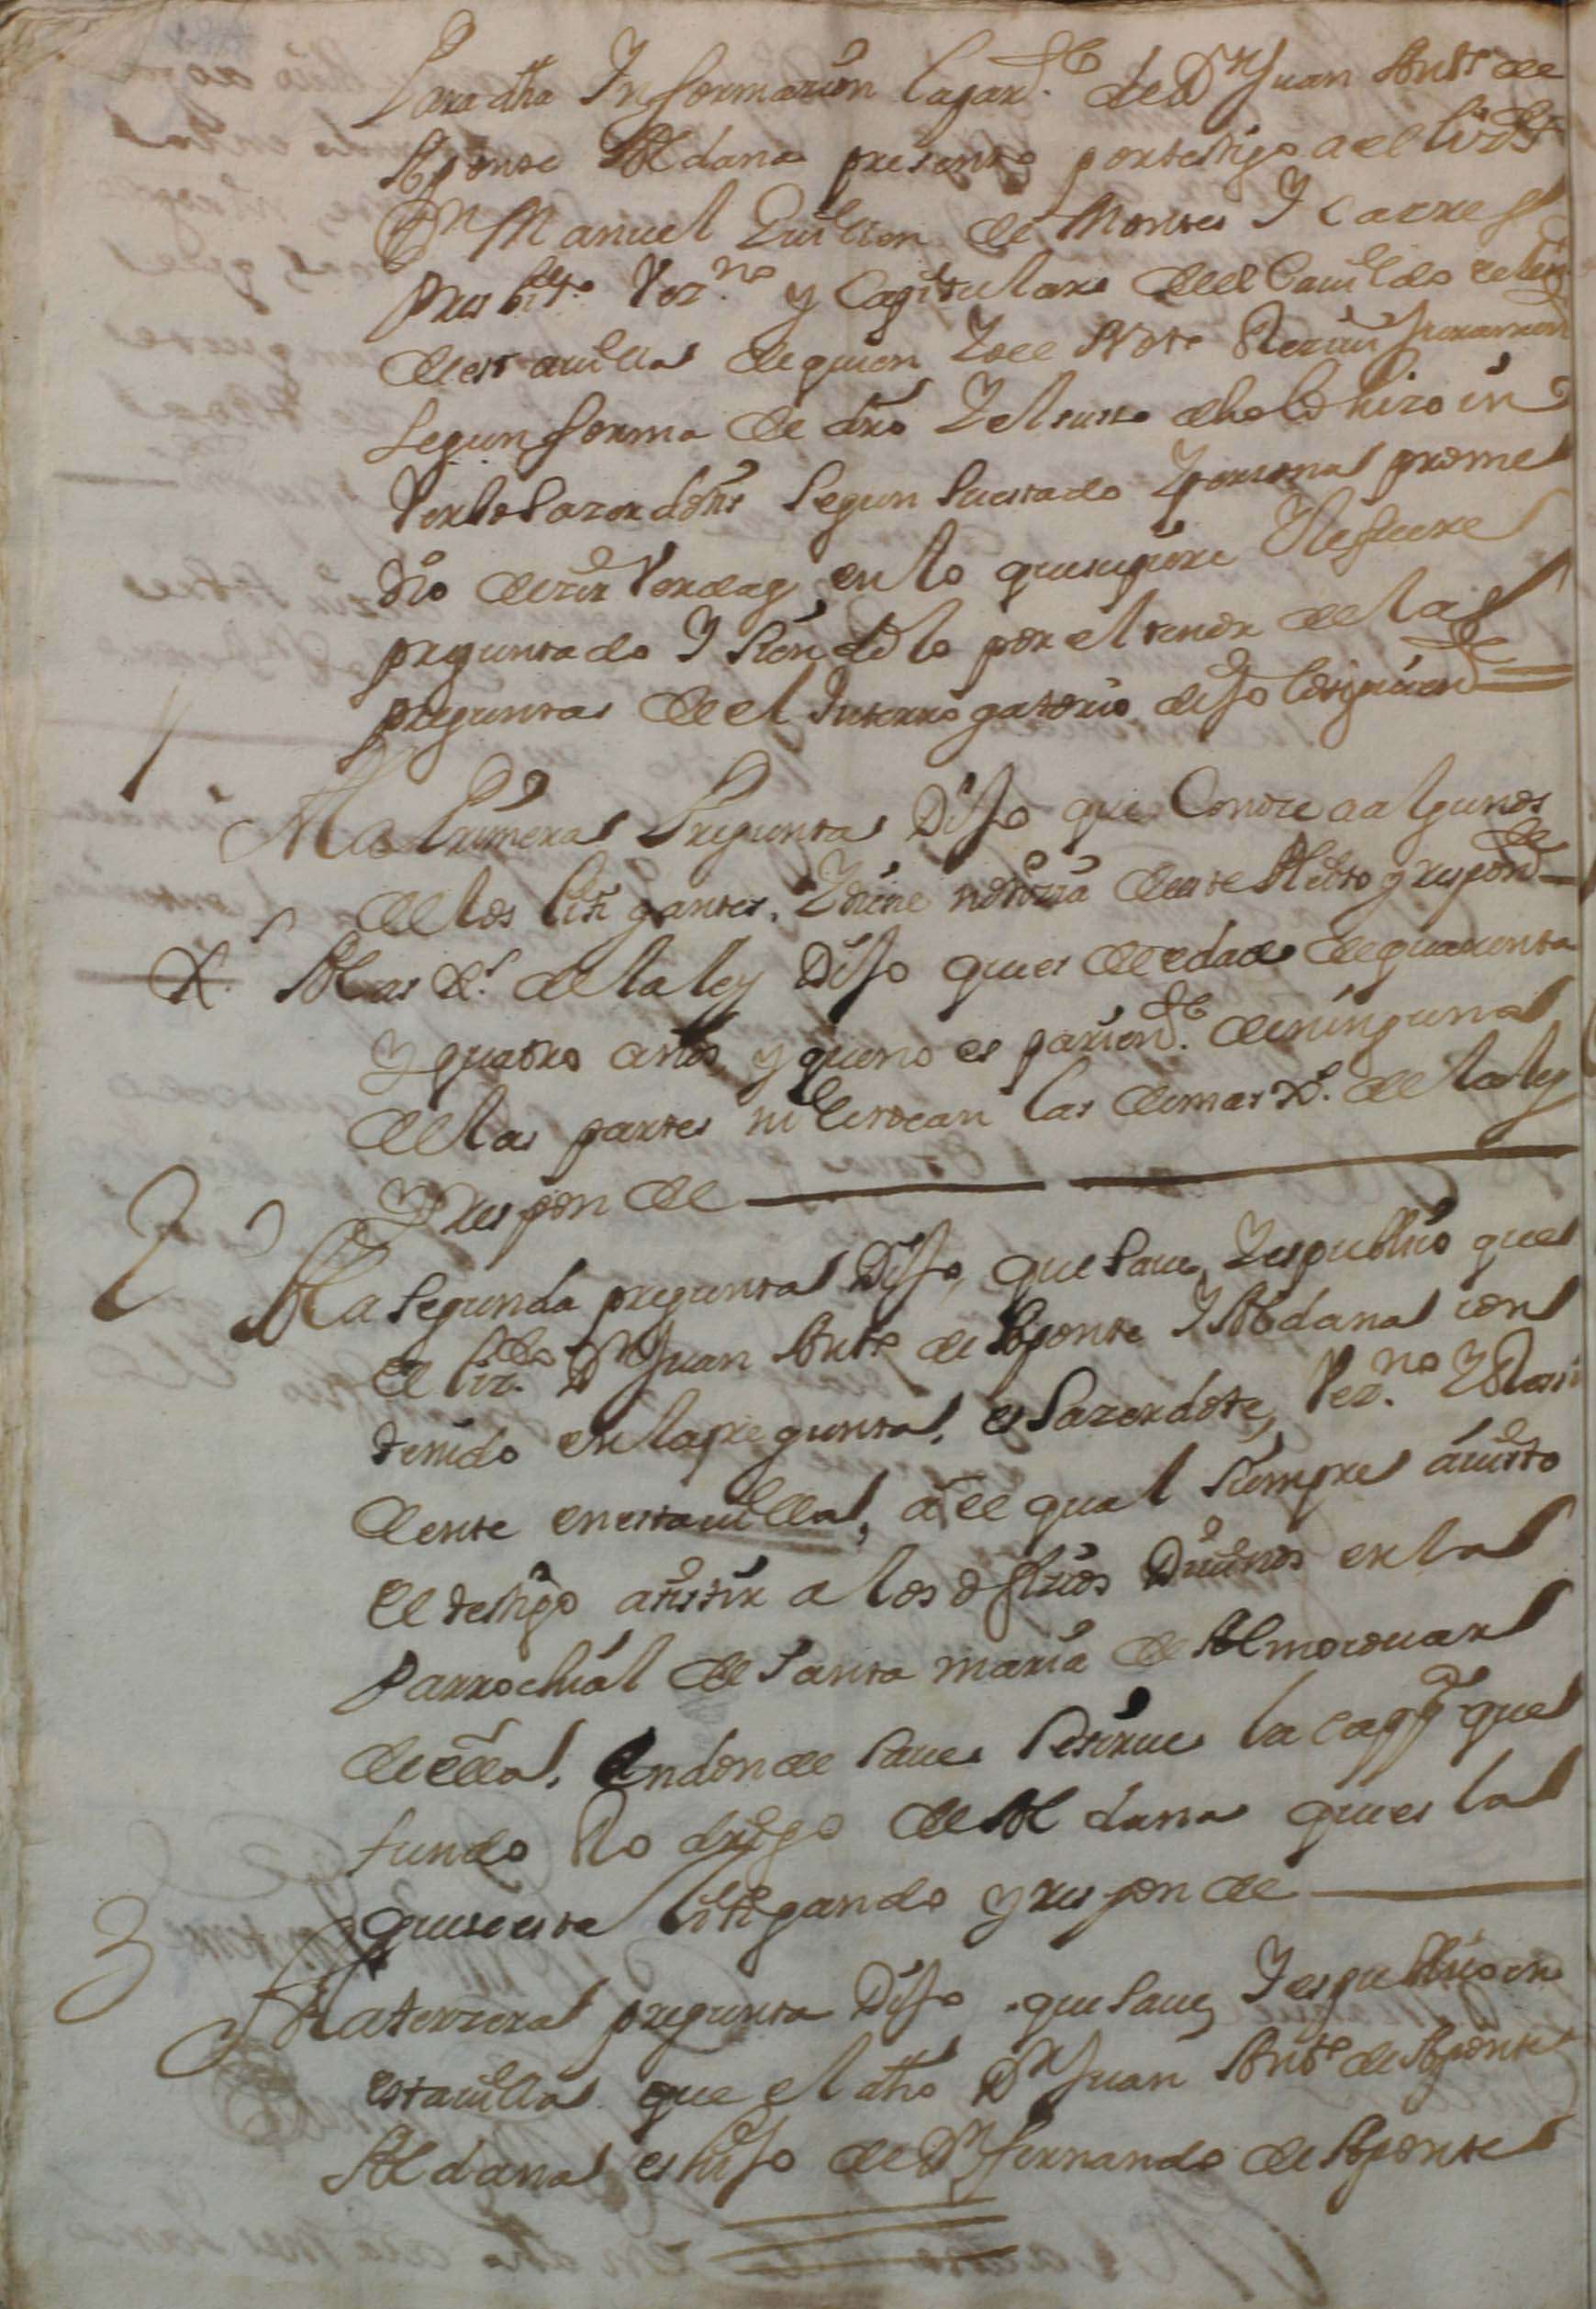 Para dha Informazion la par.te de Dn Juan Antto de
Aponte Aldana presento por testigo a el lizdo
Dn Manuel Guillen de Montes Y Carre
presbitro Vez.no y Capitulare de el Cauildo
de esta uilla de quien Yo el Notto Rezeui Juramento
segun forma de dro Y el susso dho lo hizo in
Verbo Sazerdotis segun su estado Y persona prome
tio dezir Verdad en lo que supiere Y le fuere
preguntado Y siendolo por el tenor de las
preguntas de el Interrogatorio dijo lo siguiente
1 A la Primera Pregunta Dijo que Conoze a algunos
de los litigantes. Y tiene notizia de este Pleito y respon.de
X. A las X.s de la ley Dijo que es de edad de quarenta
y quatro años y que no es parien.te de ninguna
de las partes ni le tocan las demas X.s de la ley
Y responde
2 A la segunda pregunta Dijo, que saue Y es publico que
el liz.do Dn Juan Antto de Aponte Y Aldana con
tenido en la pregunta, es Sazerdote, Vez.no Y Resi
dente en esta uilla, a el qual siempre a uisto
el testigo asistir a los ofizios Diuinos en la
Parrochial de Santa maria de Almocouar
de ella, en donde saue se sirue la capp.a que
fundo Rodrigo de Aldana que es la
que se esta litigando y responde
3 A la terzera pregunta Dijo que saue Y es publico en
esta uilla que el dho Dn Juan Antto de Aponte
Aldana es hijo de Dn fernando de Aponte